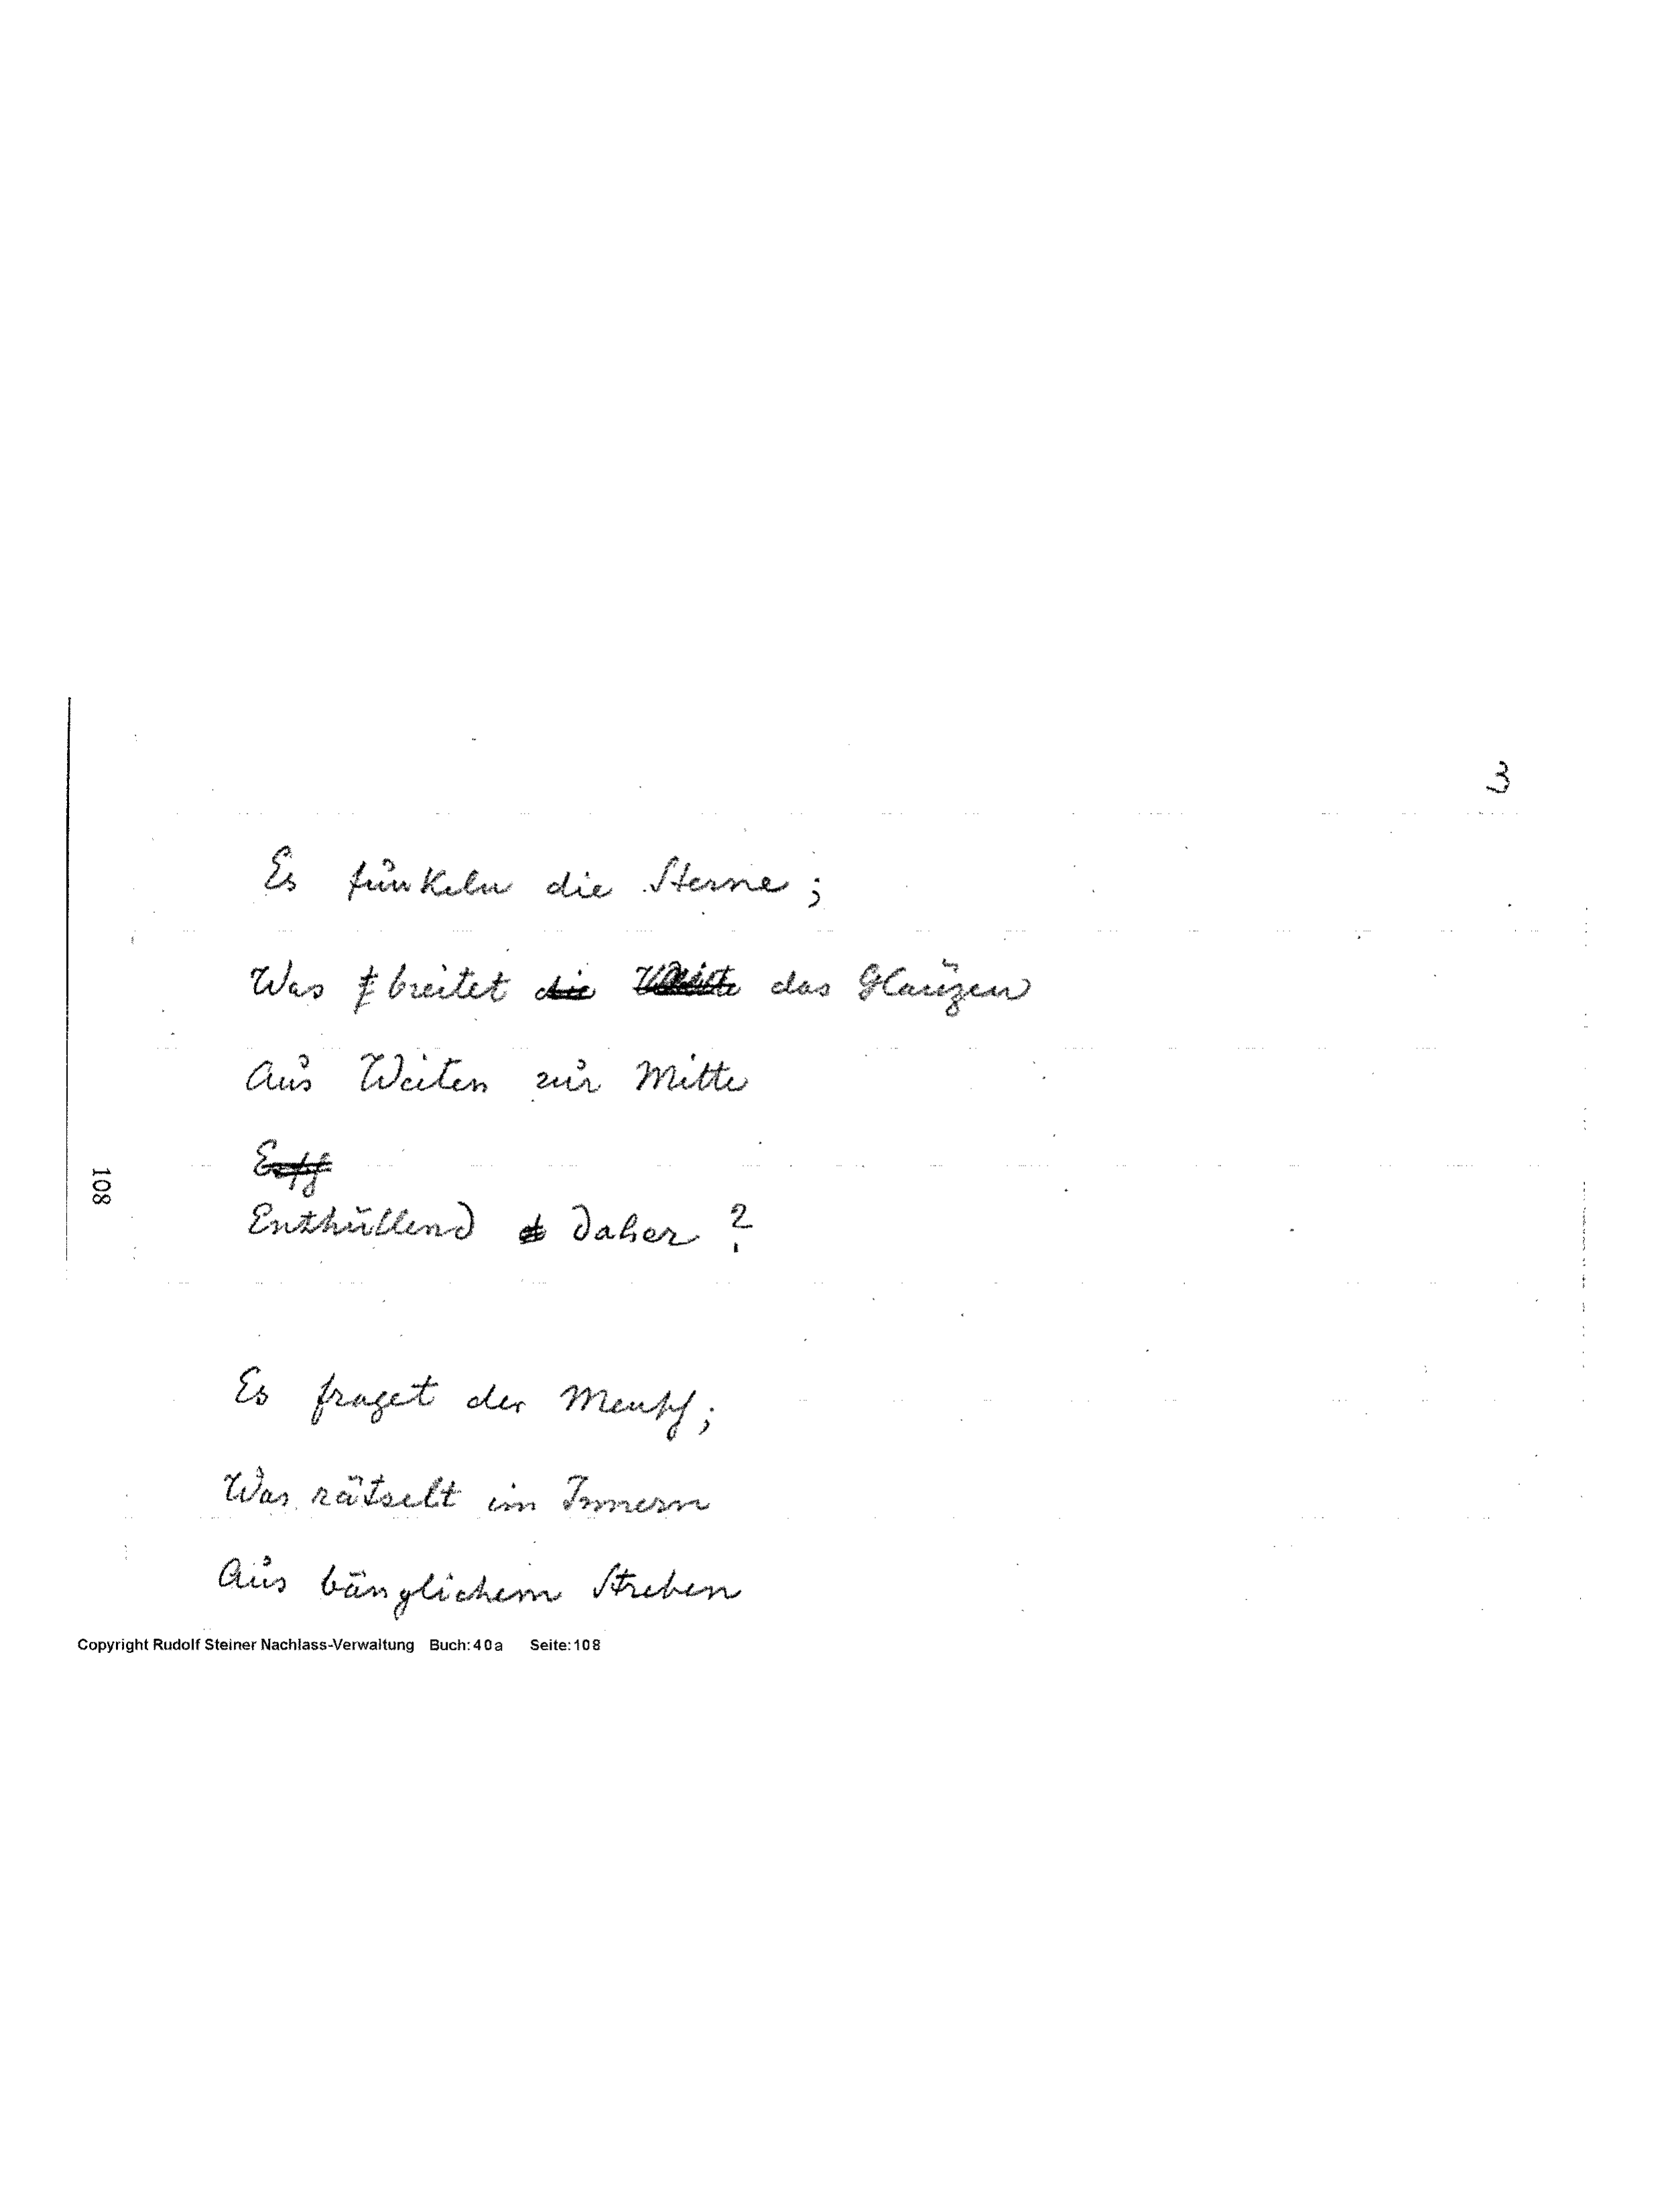 3
Es funkeln die Sterne;
Was breitet die das Glänzen
Aus Weiten zur Mitte
Enthüllend daher?
Es fraget der Mensch;
Was rätselt im Innern
Aus bänglichem Streben
108
Copyright Rudolf Steiner Nachlass-Verwaltung Buch: 40a Seite: 108